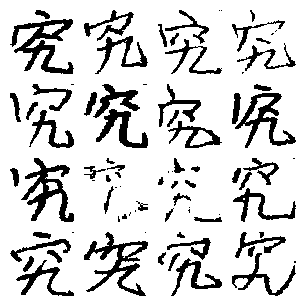 究究究究
究究究究
究究究究
究究究究